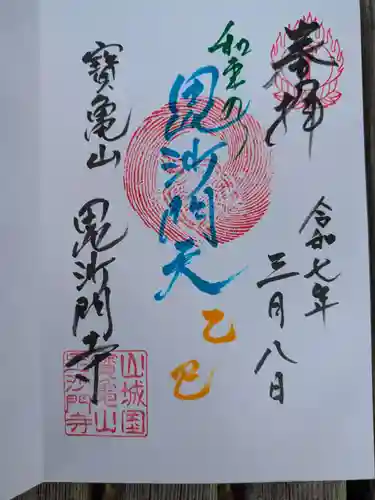 奉拝
令和七年
三月八日
和重の
毘沙門天
乙巳
寳亀山
毘沙門寺
山城国
寳亀山
毘沙門寺